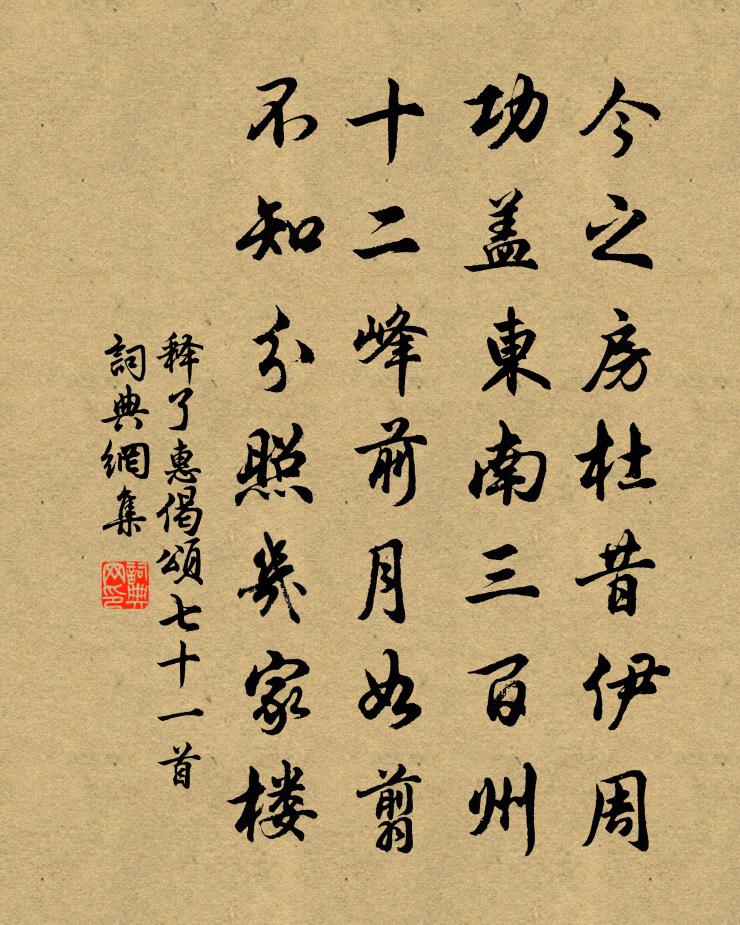 今之房杜昔伊周
功盖東南三百州
十二峰前月如翦
不知分照幾家楼
释了惠偈頌七十一首
詞典網集
詞典网印